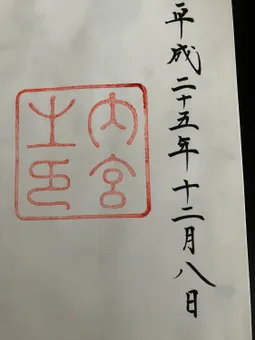 平成二十五年十二月八日
内宮
之印